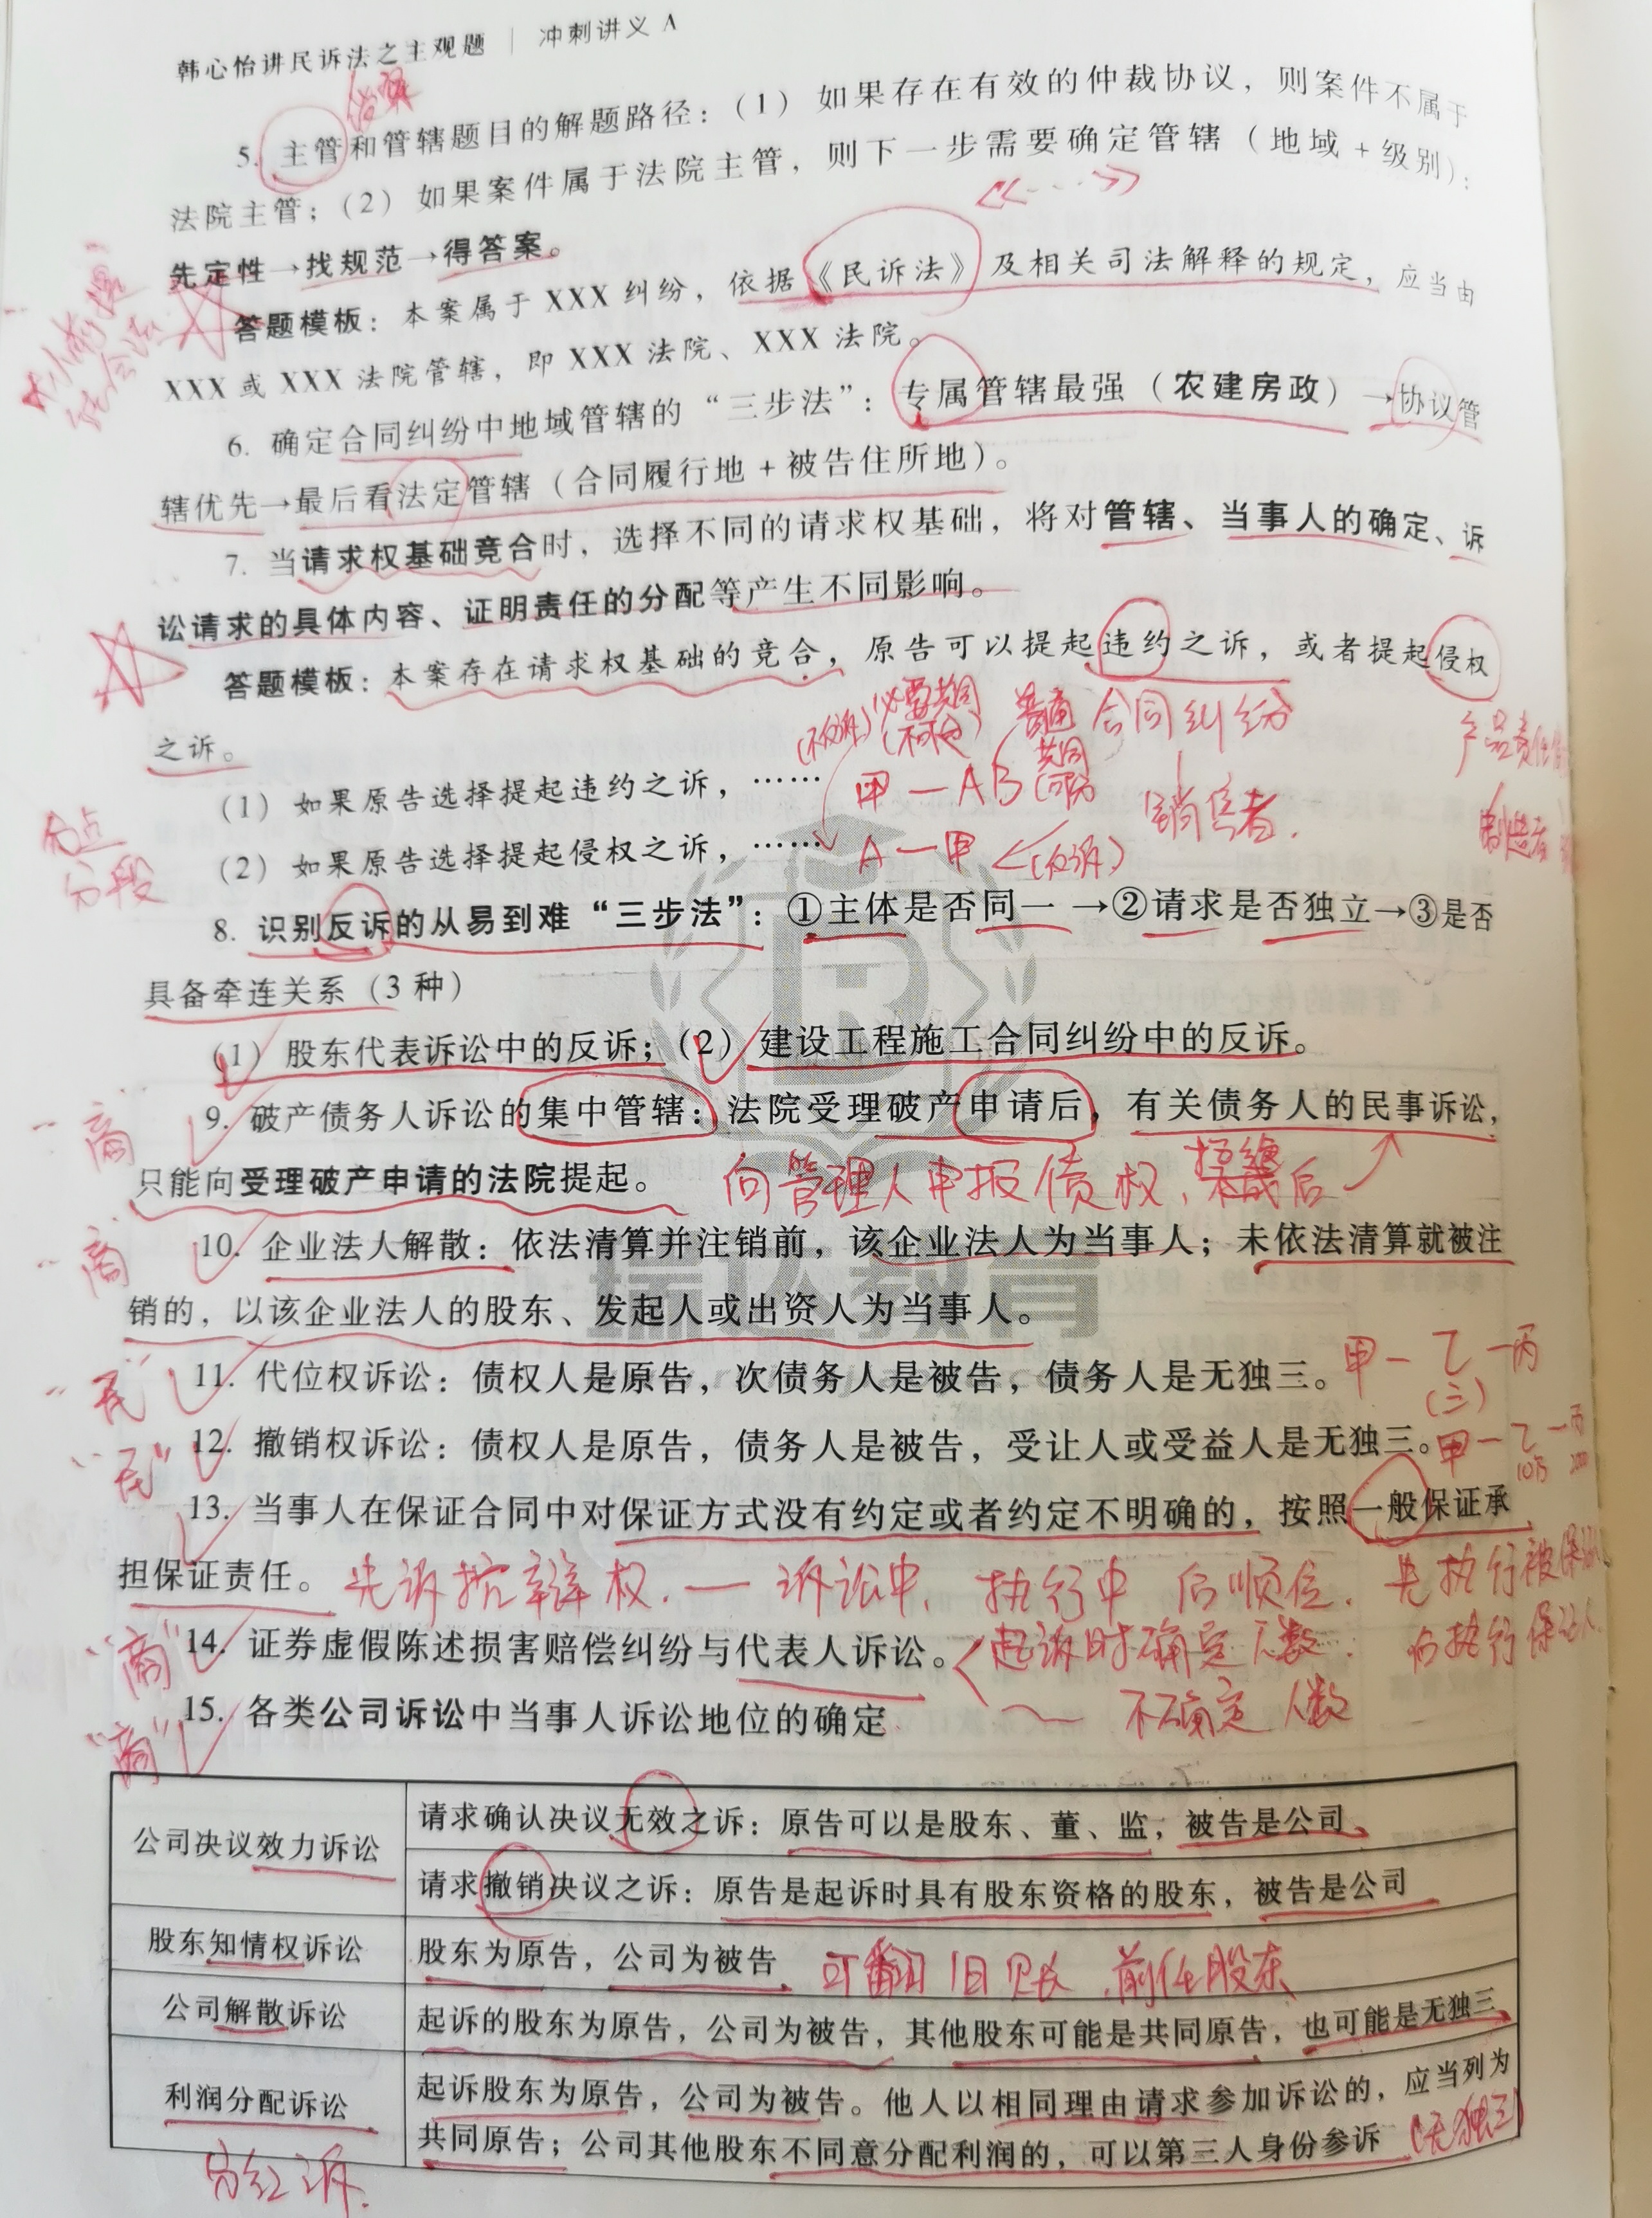 韩心怡讲民诉法之主观题 | 冲刺讲义 A
5. 主管和管辖题目的解题路径：（1）如果存在有效的仲裁协议，则案件不属于
法院主管；（2）如果案件属于法院主管，则下一步需要确定管辖（地域+级别）：
先定性→找规范→得答案。
答题模板：本案属于 XXX 纠纷，依据《民诉法》及相关司法解释的规定，应当由
XXX 或 XXX 法院管辖，即 XXX 法院、XXX 法院。
6. 确定合同纠纷中地域管辖的“三步法”：专属管辖最强（农建房政）→协议管
辖优先→最后看法定管辖（合同履行地+被告住所地）。
7. 当请求权基础竞合时，选择不同的请求权基础，将对管辖、当事人的确定、诉
讼请求的具体内容、证明责任的分配等产生不同影响。
答题模板：本案存在请求权基础的竞合，原告可以提起违约之诉，或者提起侵权
之诉。
(反诉) 必要共同 普通 合同纠纷
共同
产品责任
（1）如果原告选择提起违约之诉，……
甲一AB
销售者.
制造者
（2）如果原告选择提起侵权之诉，……
A一甲 (反诉)
分点
分段
8. 识别反诉的从易到难“三步法”：①主体是否同一→②请求是否独立→③是否
具备牵连关系（3种）
（1）股东代表诉讼中的反诉；（2）建设工程施工合同纠纷中的反诉。
9. 破产债务人诉讼的集中管辖：法院受理破产申请后，有关债务人的民事诉讼，
"商"
只能向受理破产申请的法院提起。
向管理人申报债权,
10. 企业法人解散：依法清算并注销前，该企业法人为当事人；未依法清算就被注
"商"
销的，以该企业法人的股东、发起人或出资人为当事人。
瑞达教育
11. 代位权诉讼：债权人是原告，次债务人是被告，债务人是无独三。
"民"
甲一乙一丙
(三)
12. 撤销权诉讼：债权人是原告，债务人是被告，受让人或受益人是无独三。
"民"
甲一乙一丙
13. 当事人在保证合同中对保证方式没有约定或者约定不明确的，按照一般保证承
担保证责任。
先诉抗辩权.一诉讼中、执行中 后顺位. 先执行被保证人
后执行保证人.
14. 证券虚假陈述损害赔偿纠纷与代表人诉讼。
"商"
起诉时确定人数.
不确定人数
15. 各类公司诉讼中当事人诉讼地位的确定
"商"
公司决议效力诉讼
请求确认决议无效之诉：原告可以是股东、董、监，被告是公司
请求撤销决议之诉：原告是起诉时具有股东资格的股东，被告是公司
股东知情权诉讼
股东为原告，公司为被告
可翻旧账 前任股东
公司解散诉讼
起诉的股东为原告，公司为被告，其他股东可能是共同原告，也可能是无独三
利润分配诉讼
起诉股东为原告，公司为被告。他人以相同理由请求参加诉讼的，应当列为
共同原告；公司其他股东不同意分配利润的，可以第三人身份参诉
(无独三)
分红诉.